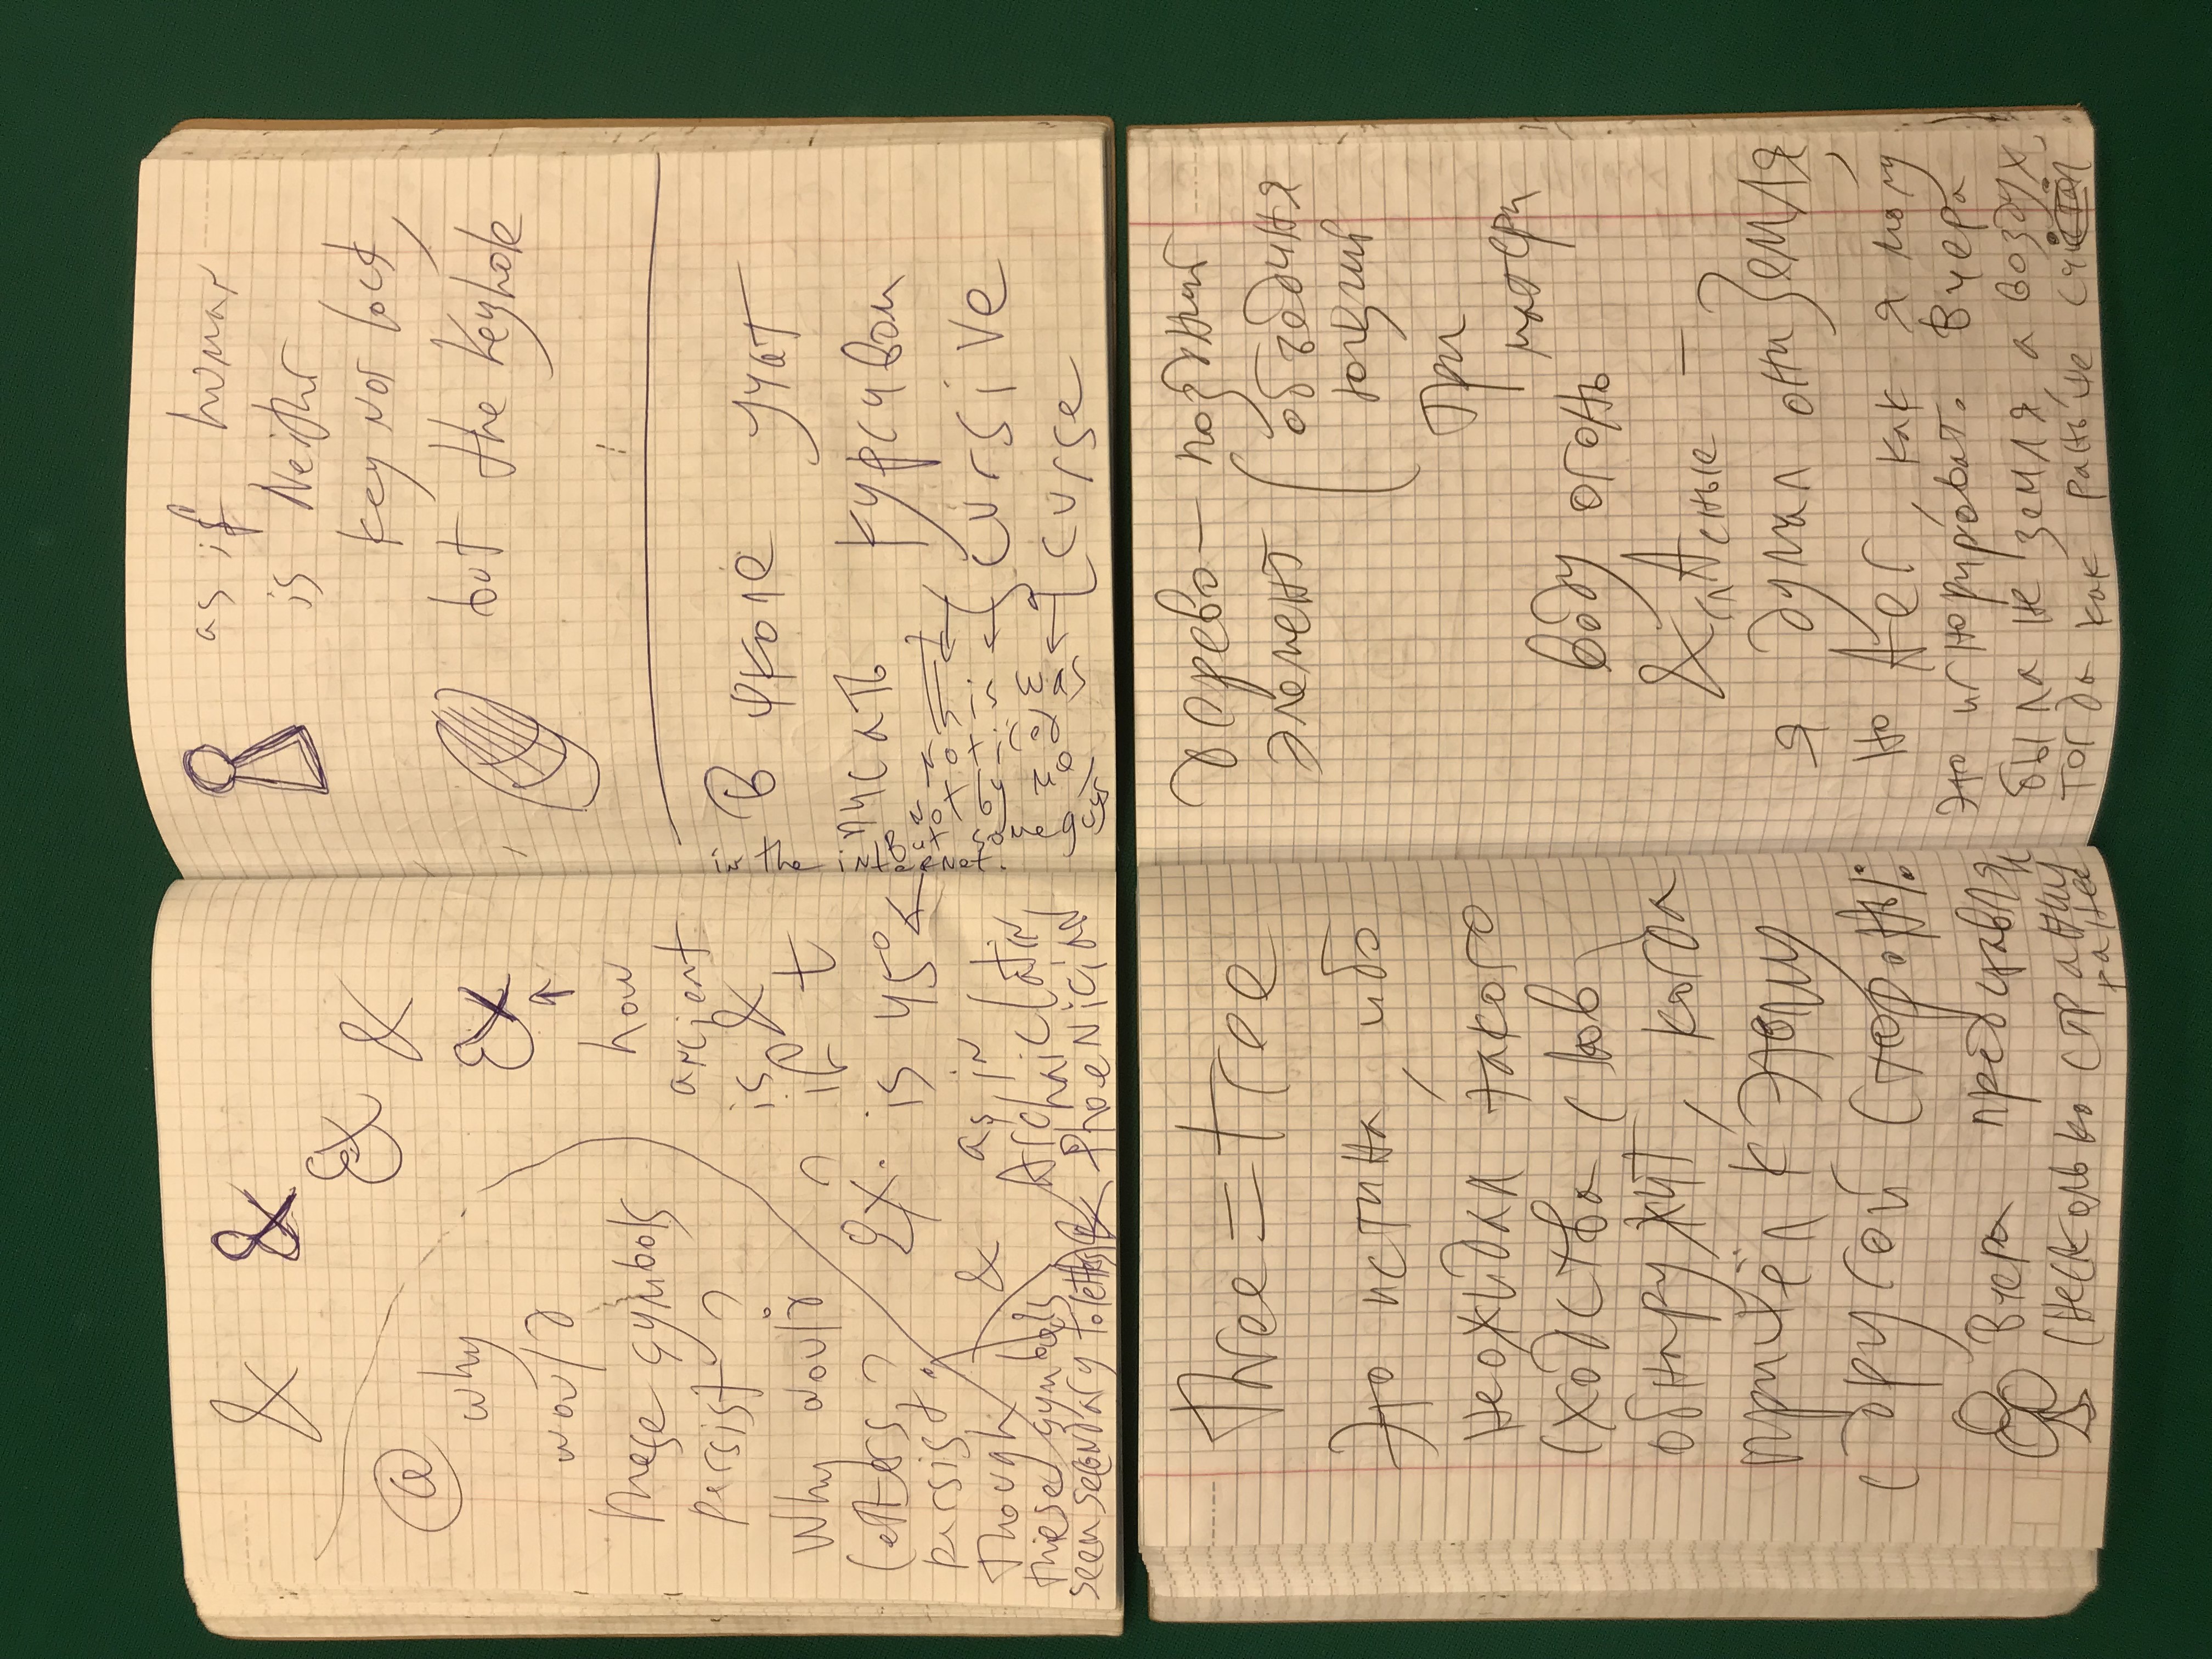 & &
& &
@
why
would
these symbols
persist?
Why would
letters,?
persist.
Though
these symbols
seem secondary to letters
&
↑
how
ancient
is &
? if t
&. is 45°
& as in
Archaic Latin
& Phoenician
as if human
is Neither
key nor lock,
but the Keyhole
В школе учат
писать курсивом
cursive
curse
in the internet.
But someguys
not by me/
noticed
his was
Three = tree
Это истина, ибо
неожидал такого
сходства слов
обнаружит, когда
пришёл к этому
с другой стороны:
Вчера представлял
(несколько страниц
ранее
дерево — поздний
элемент (объединя
ющий
три
матери
воду огонь
& глАсные —
я думал они Земля,
но Aer, как я могу
это игнорировать. Вчера
была не земля, а воздух,
тогда как раньше считал